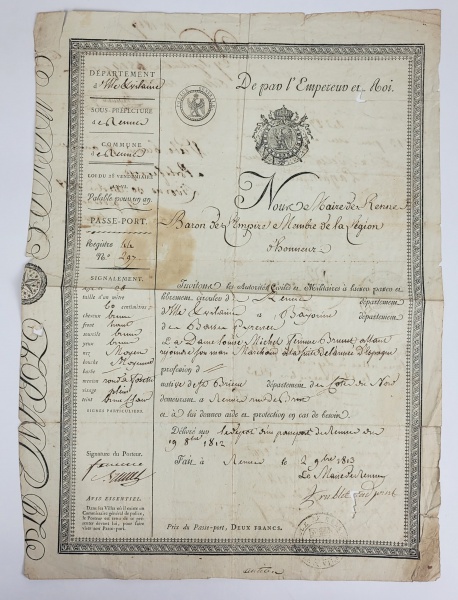 DÉPARTEMENT
d'Ille & Vilaine
SOUS-PRÉFECTURE
de Rennes
COMMUNE
de Rennes
LOI DU 28 VENDÉMIAIRE
an VI.
Valable pour un an.
PASSE-PORT.
Registre
N.º 297
SIGNALEMENT.
taille d'un mètre
centimètres
cheveux bruns
front haut
sourcils bruns
yeux
nez Moyen
bouche Moyenne
barbe
menton rond à fossette
visage plein
teint brun clair
SIGNES PARTICULIERS.
Signature du Porteur.
femme
Brunet
AVIS ESSENTIEL.
Dans les Villes où il existe un
Commissaire général de police,
le Porteur est tenu de se
présenter devant lui, pour faire
viser son Passe-port.
De par l'Empereur et Roi.
Nous Maire de Rennes
Baron de l'Empire Membre de la Légion
d'honneur
Invitons les Autorités Civiles et Militaires à laisser passer et
librement circuler de Rennes département
d'Ille & Vilaine à Bayonne
département des Basses Pyrénées
La Dame Louise Michel femme Brunet allant
rejoindre son mari Marchand à la suite de l'armée d'Espagne
profession d
native de St Brieuc département des Côtes du Nord
demeurant à Rennes rue de
et à lui donner aide et protection en cas de besoin.
Délivré sur le dépôt d'un passeport de Rennes du
19 8bre 1812
Fait à Rennes le 2 9bre 1813
Le Maire de Rennes
adjoint
Prix du Passe-port, DEUX FRANCS.